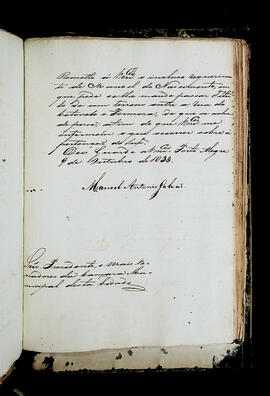 Remetto a Vm.ces o incluso requerimen
to de Manoel do Nascimento, em
que pede se lhe mande passar Titu
lo de um terreno entre a rua do
e Formosa, do que se acha
de posse, afim de que Vm.ces me
informem o que occorrer sobre a
pertenção do Sup.e
Deos Guarde a Vm.ces Porto Alegre
9 de Outubro de 1833.
Manoel Antonio Galvão
Snr. Presidente, e mais Ve-
readores da Camara Mu-
nicipal desta Cidade